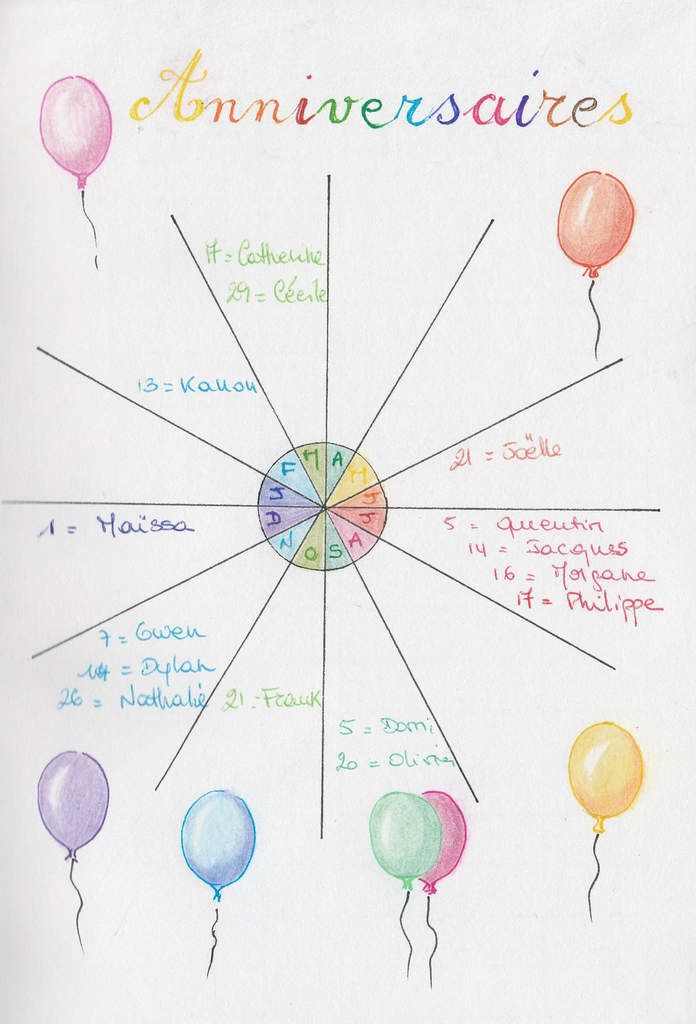 Anniversaires
17 = Catherine
29 = Cécile
13 = Kanon
21 = Joëlle
F
M
A
M
J
J
J
A
S
O
N
D
1 = Maïssa
5 = Quentin
14 = Jacques
16 = Morgane
17 = Philippe
7 = Gwen
14 = Dylan
26 = Nathalie
21 = Frank
5 = Domi
20 = Olivier